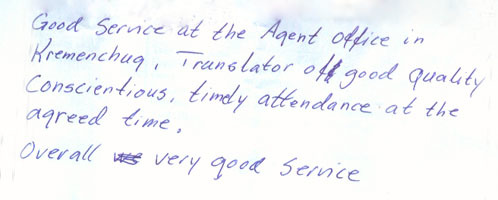 Good Service at the Agent office in
Kremenchug, Translator of good quality
Conscientious, timely attendance at the
agreed time.
Overall very good Service